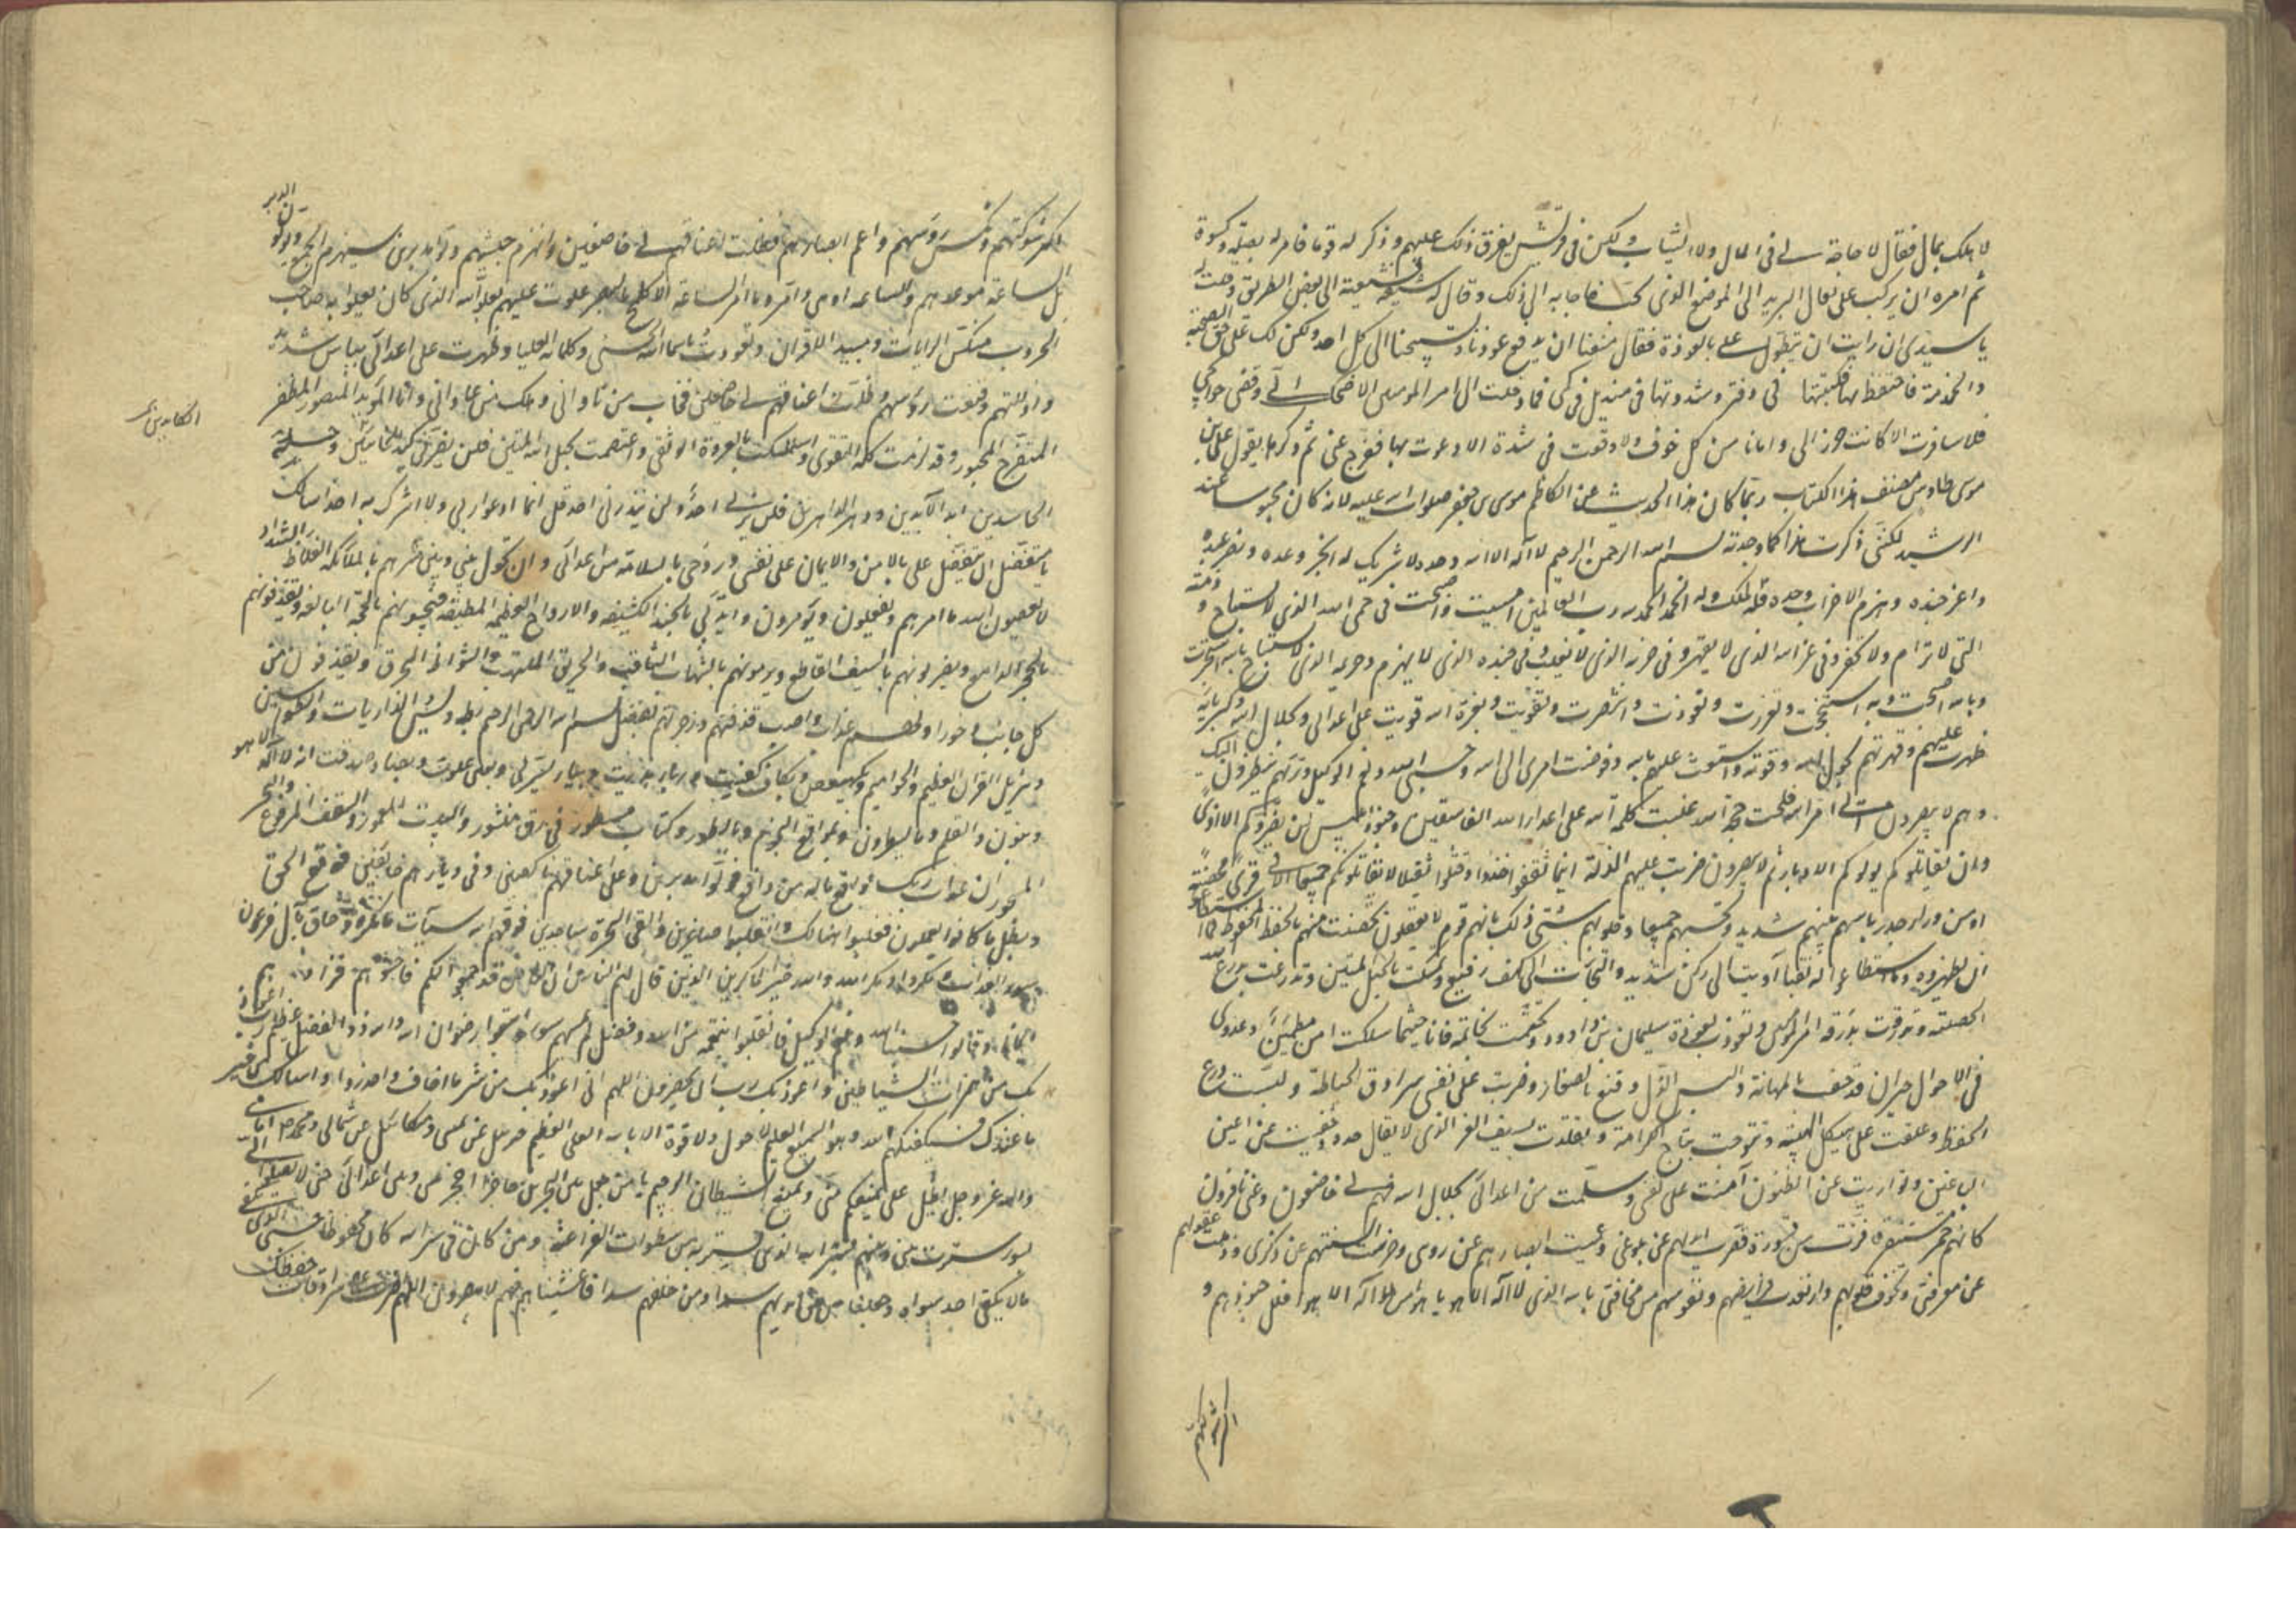 لا هلك بمال فقال لا حاجة لي في المال ولا الثياب ولكن في قريش يفرق ذلك عليهم وذكر له قوما فامر له بصلة وكسوة
ثم امره ان يركب على بغال البريد الى الموضع الذي فاجابه الى ذلك وقال له شيعه فشيعته الى بعض الطريق وقلت له
يا سيدي ان رايت ان تطول علي بالعوذة فقال منعنا ان ندفع عوذنا وتسبيحنا الى كل احد ولكن لك علي حق الصحبة
والخدمة فاحتفظ بها فكتبتها في دفتر وشددتها في منديل في كمي فما دخلت الى امير المومنين الا ضحك الي وقضى حوائجي
فلا سافرت الا كانت حرزا لي وامانا من كل خوف ولا وقعت في شدة الا دعوت بها ففرج عني ثم ذكرها يقول علي بن
موسى طاوس مصنف هذا الكتاب ربما كان هذا الحديث عن الكاظم موسى بن جعفر صلوات الله عليه لانه كان محبوسا عند
الرشيد لكنني ذكرت هذا كما وجدته بسم الله الرحمن الرحيم لا اله الا الله وحده لا شريك له انجز وعده ونصر عبده
واعز جنده وهزم الاحزاب وحده فله الملك وله الحمد الحمد لله رب العالمين امسيت واصبحت في حمى الله الذي لا يستباح وذمته
التي لا ترام ولا تخفر وفي عز الله الذي لا يقهر وفي حزبه الذي لا يغلب وفي جنده الذي لا يهزم وحريمه الذي لا يستباح بالله استجرت
وبالله اصبحت وبه استنجحت وتعززت وتعوذت وانتصرت وتقويت وبعزة الله قويت على اعدائي وبجلال الله وكبريائه
ظهرت عليهم وقهرتهم بحول الله وقوته واستعنت عليهم بالله وفوضت امري الى الله وحسبي الله ونعم الوكيل وتريهم ينظرون اليك
وهم لا يبصرون اتى امر الله فلجت حجة الله غلبت كلمة الله على اعداء الله الفاسقين وجنود ابليس لن يضروكم الا اذى
وان يقاتلوكم يولوكم الادبار ثم لا ينصرون ضربت عليهم الذلة اينما ثقفوا اخذوا وقتلوا تقتيلا لا يقاتلونكم جميعا الا في قرى محصنة
او من وراء جدر باسهم بينهم شديد تحسبهم جميعا وقلوبهم شتى ذلك بانهم قوم لا يعقلون تحصنت منهم بالحفظ المحفوظ فما استطاعوا
ان يظهروه وما استطاعوا له نقبا آويت الى ركن شديد والتجأت الى كهف رفيع وتمسكت بالحبل المتين وتدرعت بدرع الله
الحصينة وتدرقت بدرقة امير المومنين وتعوذت بعوذة سليمان بن داود وتختمت بخاتمه فانا حيثما سلكت امن مطمئن وعدوي
في الاحوال حيران قد حف بالمهانة والبس الذل وقمع بالصغار وضربت على نفسي سرادق الحياطة ولبست درع
الحفظ وعلقت علي هيكل الهيبة وتتوجت بتاج الكرامة وتقلدت بسيف العز الذي لا يفل حده وخفيت عن اعين
الباغين وتواريت عن الظنون آمنت على نفسي وسلمت من اعدائي بجلال الله فهم لي خاضعون وعني نافرون
كانهم حمر مستنفرة فرت من قسورة قصرت ايديهم عن بلوغي وعميت ابصارهم عن رويتي وخرست السنتهم عن ذكري وذهلت عقولهم
عن معرفتي وتخوفت قلوبهم وارتعدت فرائصهم ونفوسهم من مخافتي بالله الذي لا اله الا هو يا هو يا من لا اله الا هو افلل جنودهم و
اكسر شوكتهم
اكسر شوكتهم ونكس روسهم واعم ابصارهم فظلت اعناقهم لي خاضعين وانهزم جيشهم وولوا مدبرين سيهزم الجمع ويولون الدبر
بل الساعة موعدهم والساعة ادهى وامر وما امر الساعة الا كلمح البصر علوت عليهم بعلو الله الذي كان يعلو به صاحب
الحروب منكس الرايات ومبيد الاقران وتعوذت باسماء الله الحسنى وكلماته العليا وظهرت على اعدائي بباس شديد
واذللتهم وقمعت روسهم وظلت اعناقهم لي خاضعين فخاب من ناواني وهلك من عاداني وانا المويد المنصور المظفر
المتوج المحبور وقد لزمت كلمة التقوى واستمسكت بالعروة الوثقى واعتصمت بحبل الله المتين فلن يضرني كيد وحسد
الكايدين
الحاسدين ابد الآبدين ودهر الداهرين فلن يراني احد ولن ينذرني احد قل انما ادعوا ربي ولا اشرك به احدا اسالك
يا متفضل ان تتفضل علي بالامن والايمان على نفسي وروحي بالسلامة من اعدائي وان تحول بيني وبين شرهم بالملائكة الغلاظ الشداد
لا يعصون الله ما امرهم ويفعلون ما يومرون وايدني بالجند الكثيفة والارواح العظيمة المطيعة فيجيبونهم بالحجة البالغة ويقذفونهم
بالحجر الدامغ ويضربونهم بالسيف القاطع ويرمونهم بالشهاب الثاقب والحريق الملتهب والشواظ المحرق ويقذفون من
كل جانب دحورا ولهم عذاب واصب قذفتهم وزجرتهم بفضل بسم الله الرحمن الرحيم بطه ويس والذاريات والطواسين
وتنزيل القرآن العظيم والحواميم وبكهيعص وبكاف كفيت
وبنون والقلم وما يسطرون وبمواقع النجوم وبالطور وكتاب مسطور في رق منشور والبيت المعمور والسقف المرفوع والبحر
المسجور ان عذاب ربك لواقع ما له من دافع فولوا مدبرين وعلى اعقابهم ناكصين وفي ديارهم خائفين فوقع الحق
وبطل ما كانوا يعملون فغلبوا هنالك وانقلبوا صاغرين والقي السحرة ساجدين فوقيه الله سيآت ما مكروا وحاق بآل فرعون
سوء العذاب ومكروا ومكر الله والله خير الماكرين الذين قال لهم الناس ان الناس قد جمعوا لكم فاخشوهم فزادهم
ايمانا وقالوا حسبنا الله ونعم الوكيل فانقلبوا بنعمة من الله وفضل لم يمسسهم سوء واتبعوا رضوان الله والله ذو الفضل العظيم رب اعوذ
بك من همزات الشياطين واعوذ بك رب ان يحضرون اللهم اني اعوذ بك من شر ما اخاف واحذر واسالك من خير
ما عندك فسيكفيكهم الله وهو السميع العليم لا حول ولا قوة الا بالله العلي العظيم جبريل عن يميني وميكائيل عن شمالي ومحمد ص امامي
والله عز وجل يمنعكم مني ويمنع الشيطان الرجيم يا من جعل بين البحرين حاجزا احجز بيني وبين اعدائي حتى لا يصلوا الي
بسوء سترت بيني وبينهم بستر الله الذي يستتر به من سطوات الفراعنة ومن كان في ستر الله كان محفوظا حسبي الذي يكفي
ما لا يكفي احد سواه وجعلنا من بين ايديهم سدا ومن خلفهم سدا فاغشيناهم فهم لا يبصرون اللهم اضرب علي سرادقات حفظك